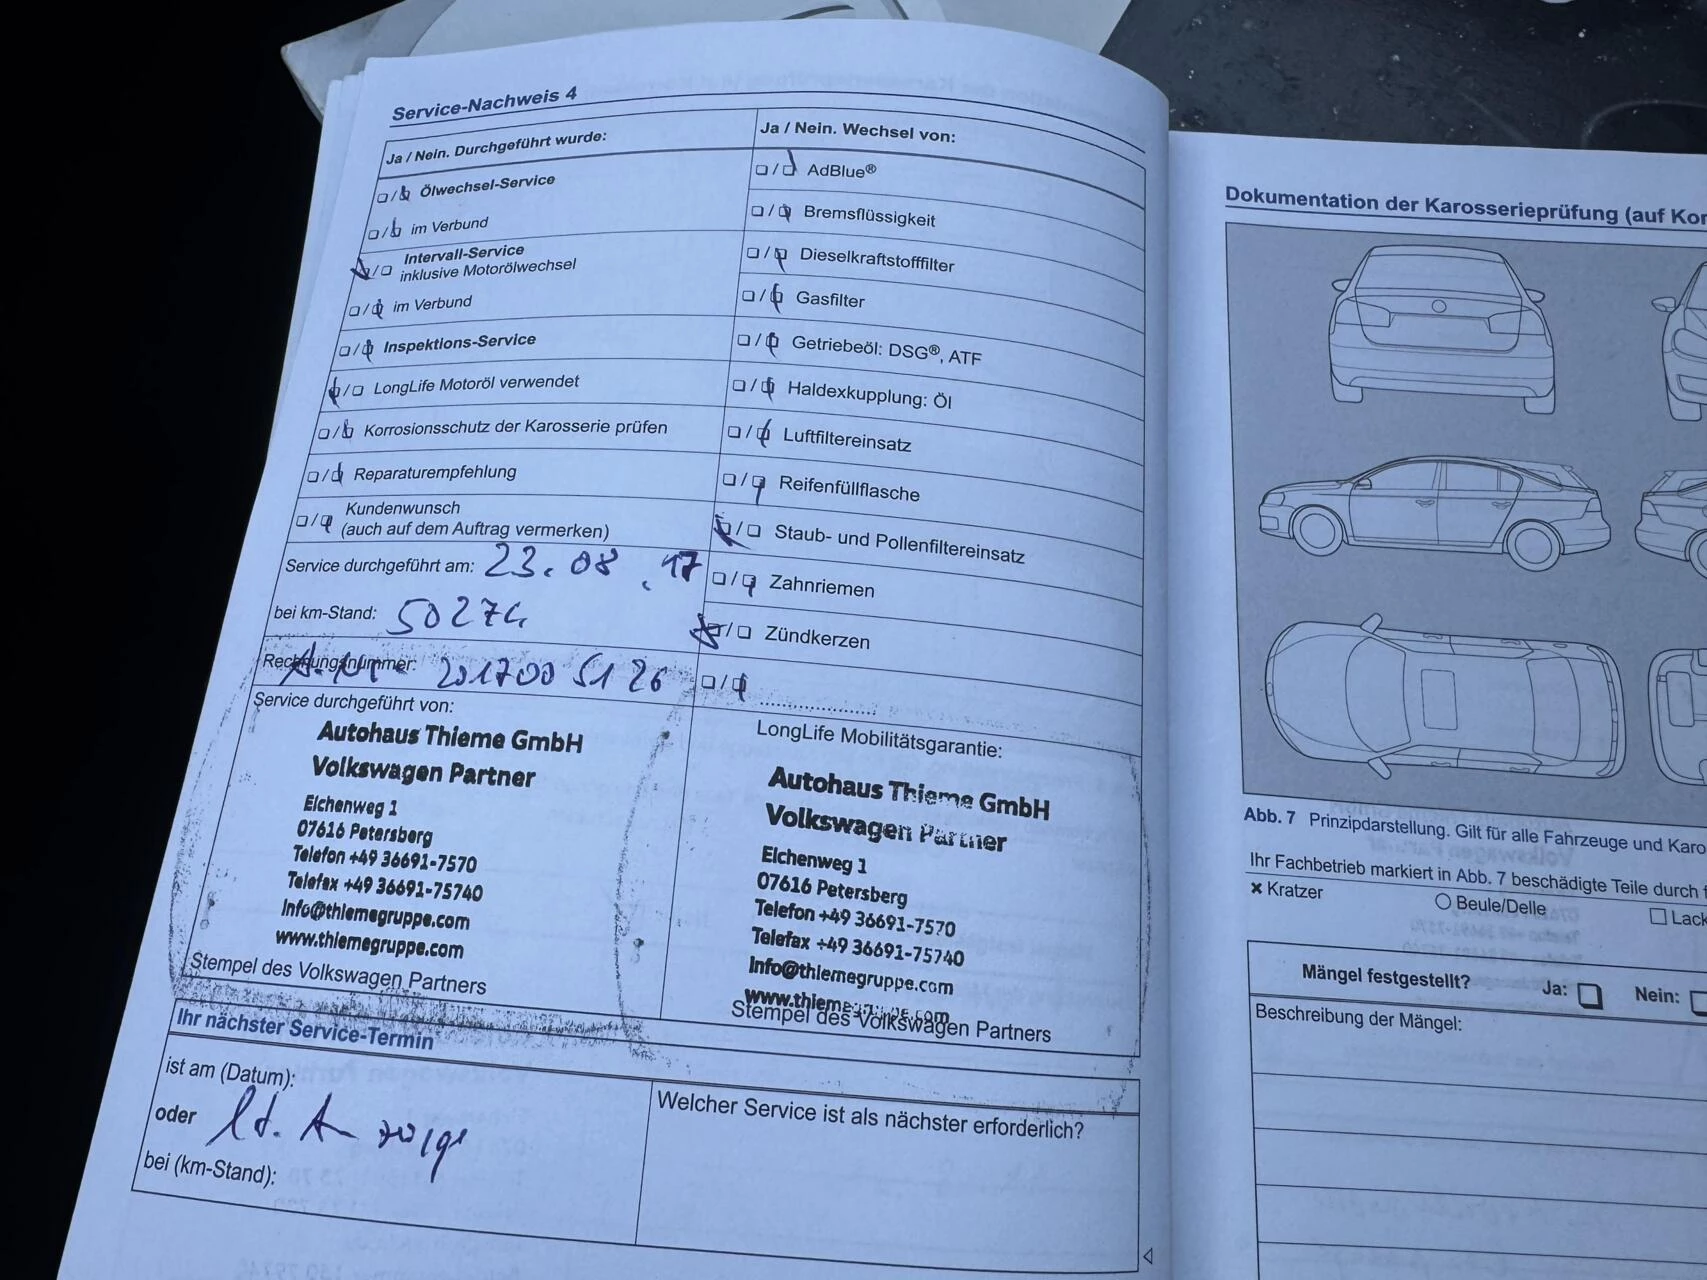 Service-Nachweis 4
Ja / Nein. Durchgeführt wurde:
❏ / ❏ Ölwechsel-Service
❏ / ❏ im Verbund
❏ / ❏ Intervall-Service
inklusive Motorölwechsel
❏ / ❏ im Verbund
❏ / ❏ Inspektions-Service
❏ / ❏ LongLife Motoröl verwendet
❏ / ❏ Korrosionsschutz der Karosserie prüfen
❏ / ❏ Reparaturempfehlung
❏ / ❏ Kundenwunsch
(auch auf dem Auftrag vermerken)
Service durchgeführt am: 23.08.17
bei km-Stand: 50274
Rechnungsnummer: A.Nr. 2017005126
Ja / Nein. Wechsel von:
❏ / ❏ AdBlue®
❏ / ❏ Bremsflüssigkeit
❏ / ❏ Dieselkraftstofffilter
❏ / ❏ Gasfilter
❏ / ❏ Getriebeöl: DSG®, ATF
❏ / ❏ Haldexkupplung: Öl
❏ / ❏ Luftfiltereinsatz
❏ / ❏ Reifenfüllflasche
❏ / ❏ Staub- und Pollenfiltereinsatz
❏ / ❏ Zahnriemen
❏ / ❏ Zündkerzen
❏ / ❏ ......................
Service durchgeführt von:
Autohaus Thieme GmbH
Volkswagen Partner
Eichenweg 1
07616 Petersberg
Telefon +49 36691-7570
Telefax +49 36691-75740
Info@thiemegruppe.com
www.thiemegruppe.com
Stempel des Volkswagen Partners
LongLife Mobilitätsgarantie:
Autohaus Thieme GmbH
Volkswagen Partner
Eichenweg 1
07616 Petersberg
Telefon +49 36691-7570
Telefax +49 36691-75740
Info@thiemegruppe.com
www.thiemegruppe.com
Stempel des Volkswagen Partners
Ihr nächster Service-Termin
ist am (Datum):
oder lt. Anzeige
bei (km-Stand):
Welcher Service ist als nächster erforderlich?
Dokumentation der Karosserieprüfung (auf
Abb. 7 Prinzipdarstellung. Gilt für alle Fahrzeuge und
Ihr Fachbetrieb markiert in Abb. 7 beschädigte Teile durch
× Kratzer
○ Beule/Delle
❏ Lack
Mängel festgestellt? Ja: ❏ Nein: ❏
Beschreibung der Mängel: